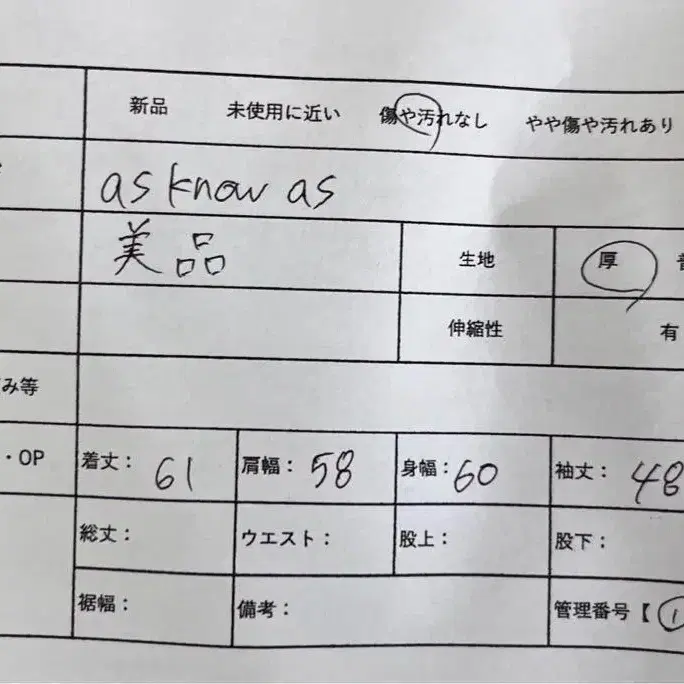 新品 未使用に近い 傷や汚れなし やや傷や汚れあり
as know as
美品 生地 厚
伸縮性 有
み等
・OP 着丈: 61 肩幅: 58 身幅: 60 袖丈: 48
総丈: ウエスト: 股上: 股下:
裾幅: 備考: 管理番号【 1